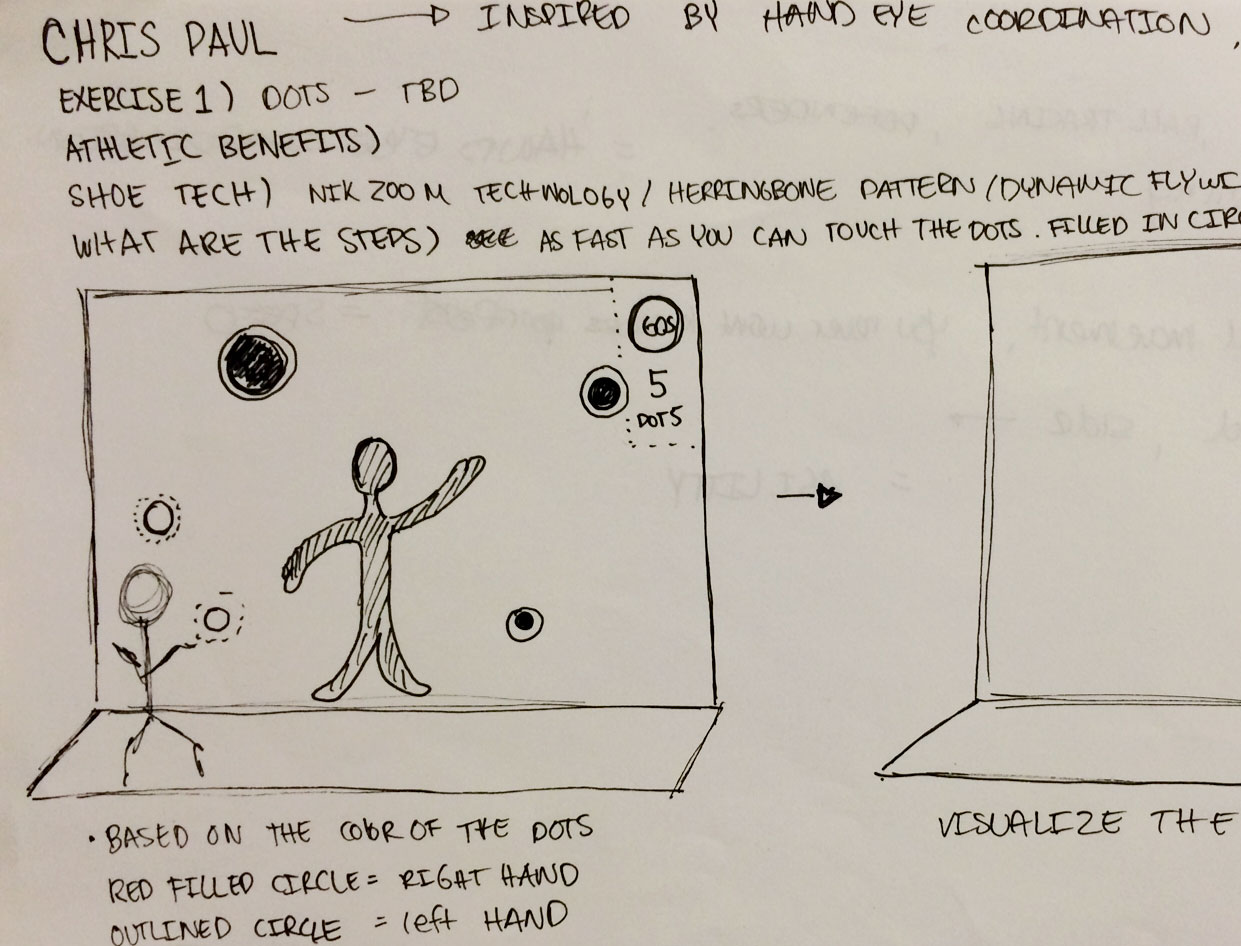 CHRIS PAUL → INSPIRED BY HAND EYE COORDINATION,
EXERCISE 1) DOTS - TBD
ATHLETIC BENEFITS)
SHOE TECH) NIK ZOOM TECHNOLOGY / HERRINGBONE PATTERN / DYNAMIC FLYWI
WHAT ARE THE STEPS) AS FAST AS YOU CAN TOUCH THE DOTS. FILLED IN CIR
60S
5
DOTS
• BASED ON THE COLOR OF THE DOTS
RED FILLED CIRCLE = RIGHT HAND
OUTLINED CIRCLE = left HAND
VISUALIZE THE